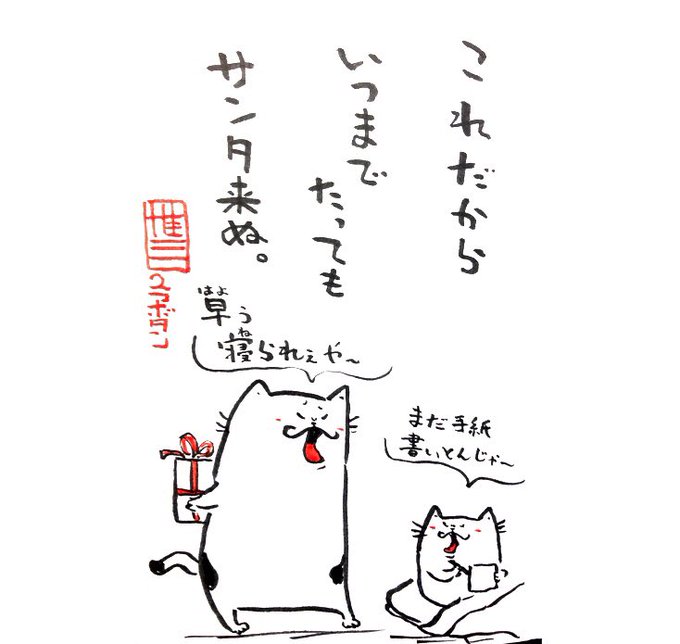 これだから
いつまで
たっても
サンタ来ぬ。
はよ
草う
ね
寝られぇや〜
まだ手紙
書いとんじゃ〜